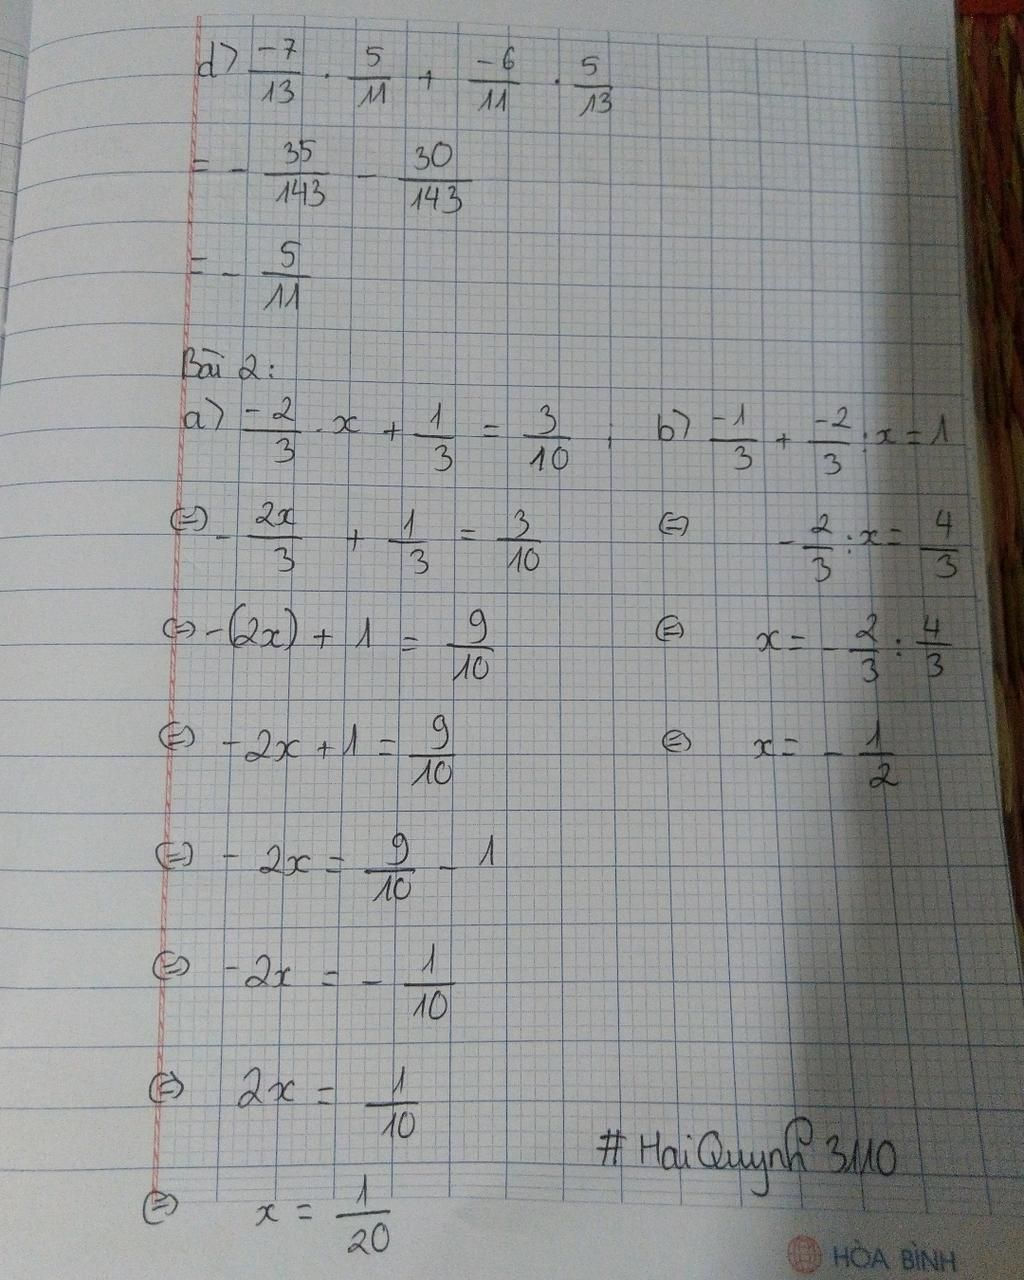 d) -7/13 . 5/11 + -6/11 . 5/13
= - 35/143 - 30/143
= - 5/11
Bài 2:
a) -2/3 . x + 1/3 = 3/10 ; b) -1/3 + -2/3 : x = 1
(=) - 2x/3 + 1/3 = 3/10 (=) - 2/3 : x = 4/3
(=) -(2x) + 1 = 9/10 (=) x = - 2/3 : 4/3
(=) -2x + 1 = 9/10 (=) x = - 1/2
(=) - 2x = 9/10 - 1
(=) -2x = - 1/10
(=) 2x = 1/10
# HaiQuynh 3110
(=) x = 1/20
HÒA BÌNH